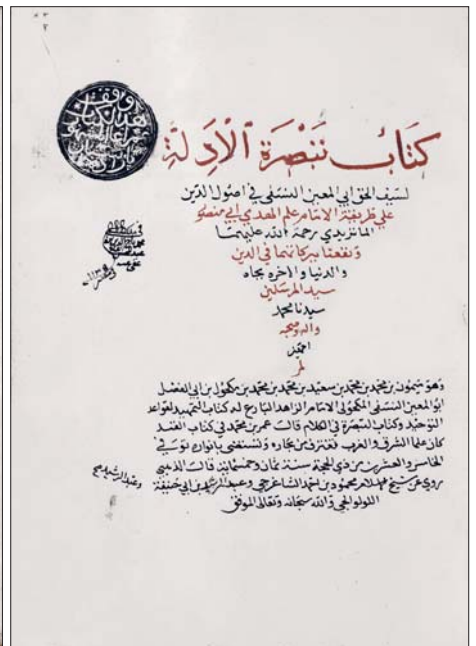 كتاب تبصرة الأدلة
لسيف الحق ابي المعين النسفي في اصول الدين
على طريقة الامام علم الهدى ابي منصور
الماتريدي رحمة الله عليهما
ونفعنا ببركاتهما في الدين
والدنيا والاخرة بجاه
سيد المرسلين
سيدنا محمد
واله وصحبه
اجمعين
وهو ميمون بن محمد بن محمد بن سعيد بن محمد بن محمد بن مكحول بن ابي الفضل
ابو المعين النسفي المكحولي الامام الزاهد البارع له كتاب التمهيد لقواعد
التوحيد وكتاب التبصرة في الكلام قال عمر بن محمد في كتاب القند
كان علما الشرق والغرب تغترف من بحاره وتستضئ بانواره توفي في
الخامس والعشرين من ذي الحجة سنة ثمان وخمسمائة قال الذهبي
روى عن شيخ الاسلام محمود بن احمد الشاغرجي وعبد الرشيد بن ابي حنيفة
الولوالجي والله سبحانه وتعالى الموفق
وعبد الرشيد